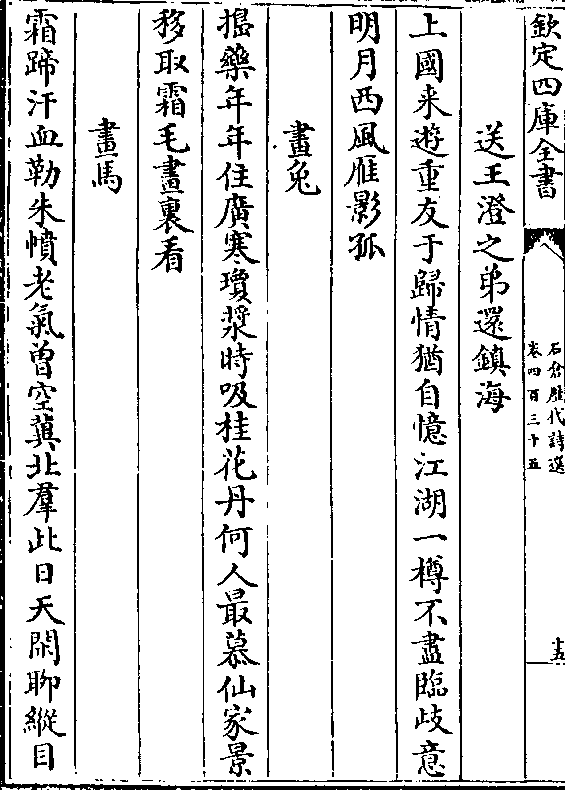 欽定四庫全書
石倉歷代詩選
卷四百三十五
十五
送王澄之弟還鎮海
上國来遊重友于歸情猶自憶江湖一樽不盡臨歧意
明月西風雁影孤
畫兔
搗藥年年住廣寒瓊漿時吸桂花丹何人最慕仙家景
移取霜毛畫裏看
畫馬
霜蹄汗血勒朱幩老氣曽空冀北羣此日天閑聊縱目